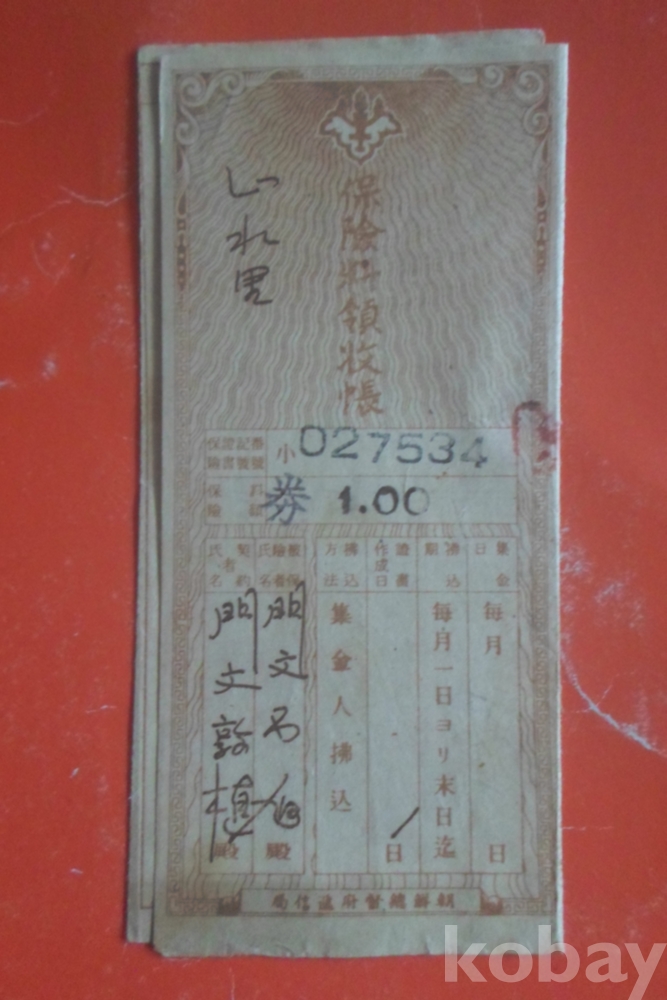 保險料領收帳
山水里
保險證書記號番號
小027534
保險料額
券 1.00
集金日
毎月 日
拂込期
毎月一日ヨリ末日迄
證書作成日
日
拂込方法
集金人拂込
被保險者氏名
文 殿
契約者氏名
文敦植 殿
朝鮮總督府遞信局
kobay